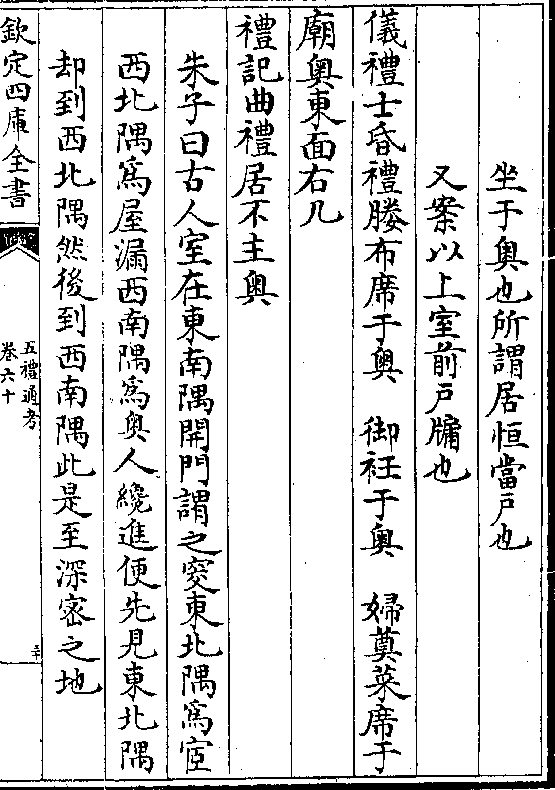 坐于奥也所謂居恒當戶也
又案以上室前戶牖也
儀禮士昏禮媵布席于奥　御衽于奥　婦奠菜席于
廟奥東面右几
禮記曲禮居不主奥
朱子曰古人室在東南隅開門謂之窔東北隅爲宧
西北隅爲屋漏西南隅爲奥人纔進便先見東北隅
却到西北隅然後到西南隅此是至深密之地
欽定四庫全書
五禮通考
卷六十